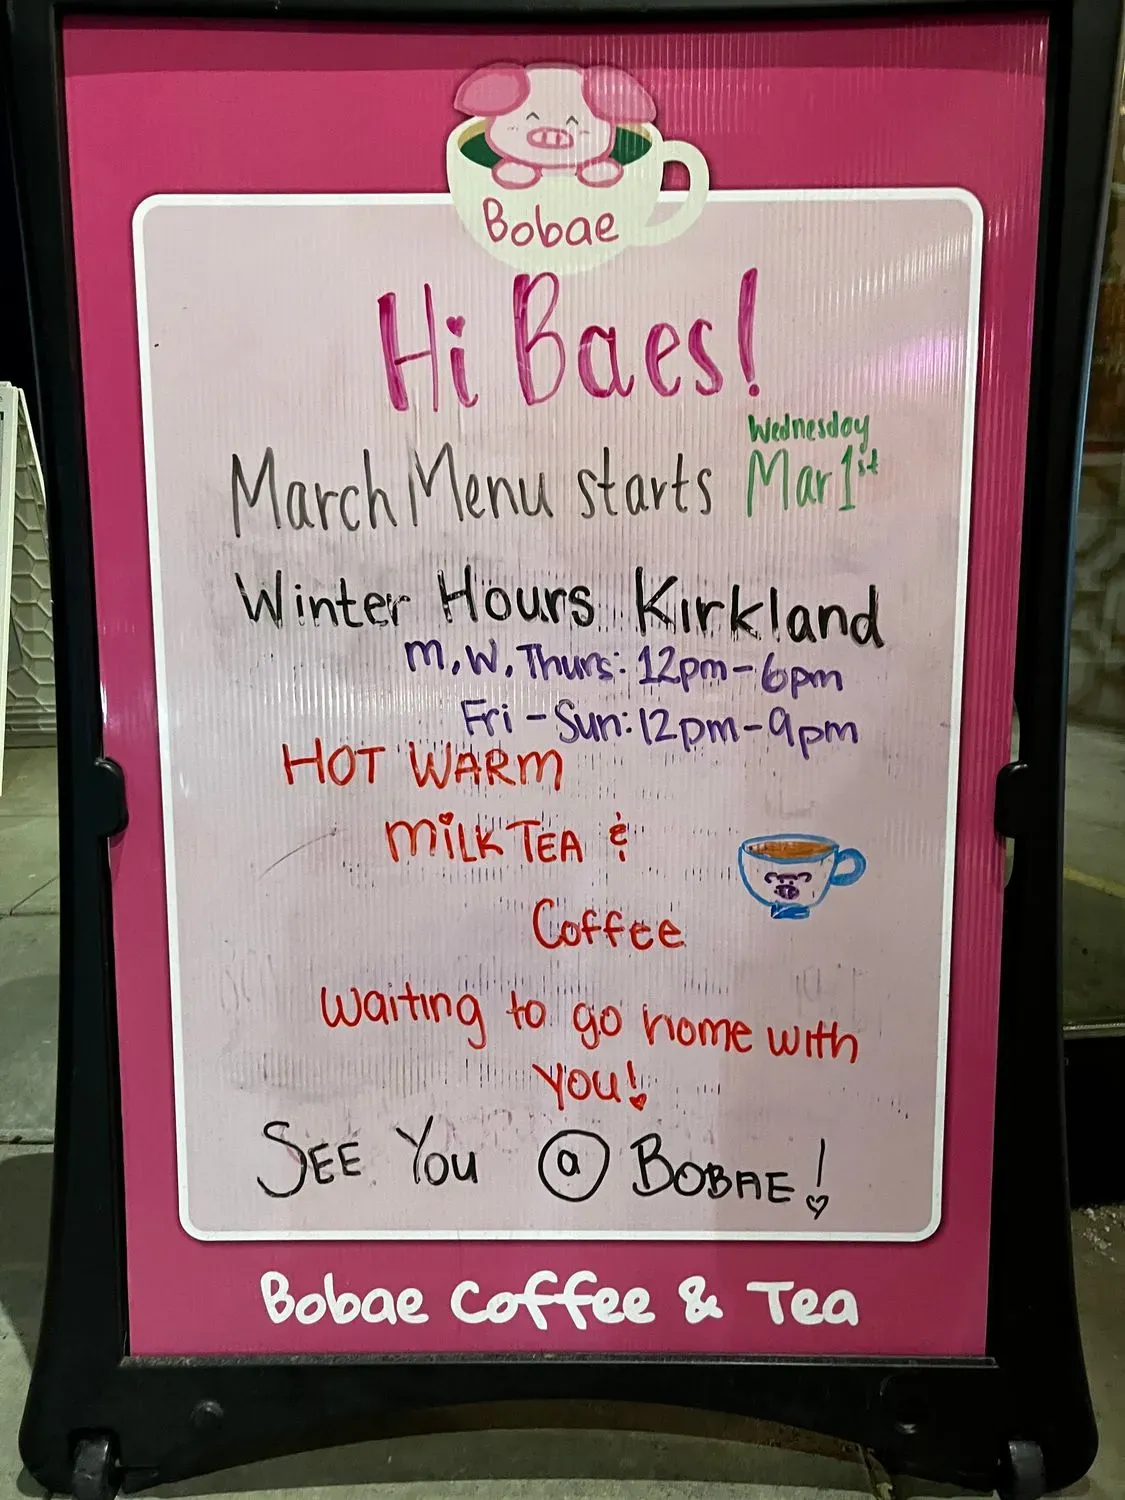 Bobae
Hi Baes!
Wednesday
March Menu starts Mar 1st
Winter Hours Kirkland
M, W, Thurs: 12pm-6pm
Fri - Sun: 12pm-9pm
HOT WARM
MiLK TEA &
Coffee
Waiting to go home with
YOU!
SEE YOU @ BOBAE!
Bobae Coffee & Tea